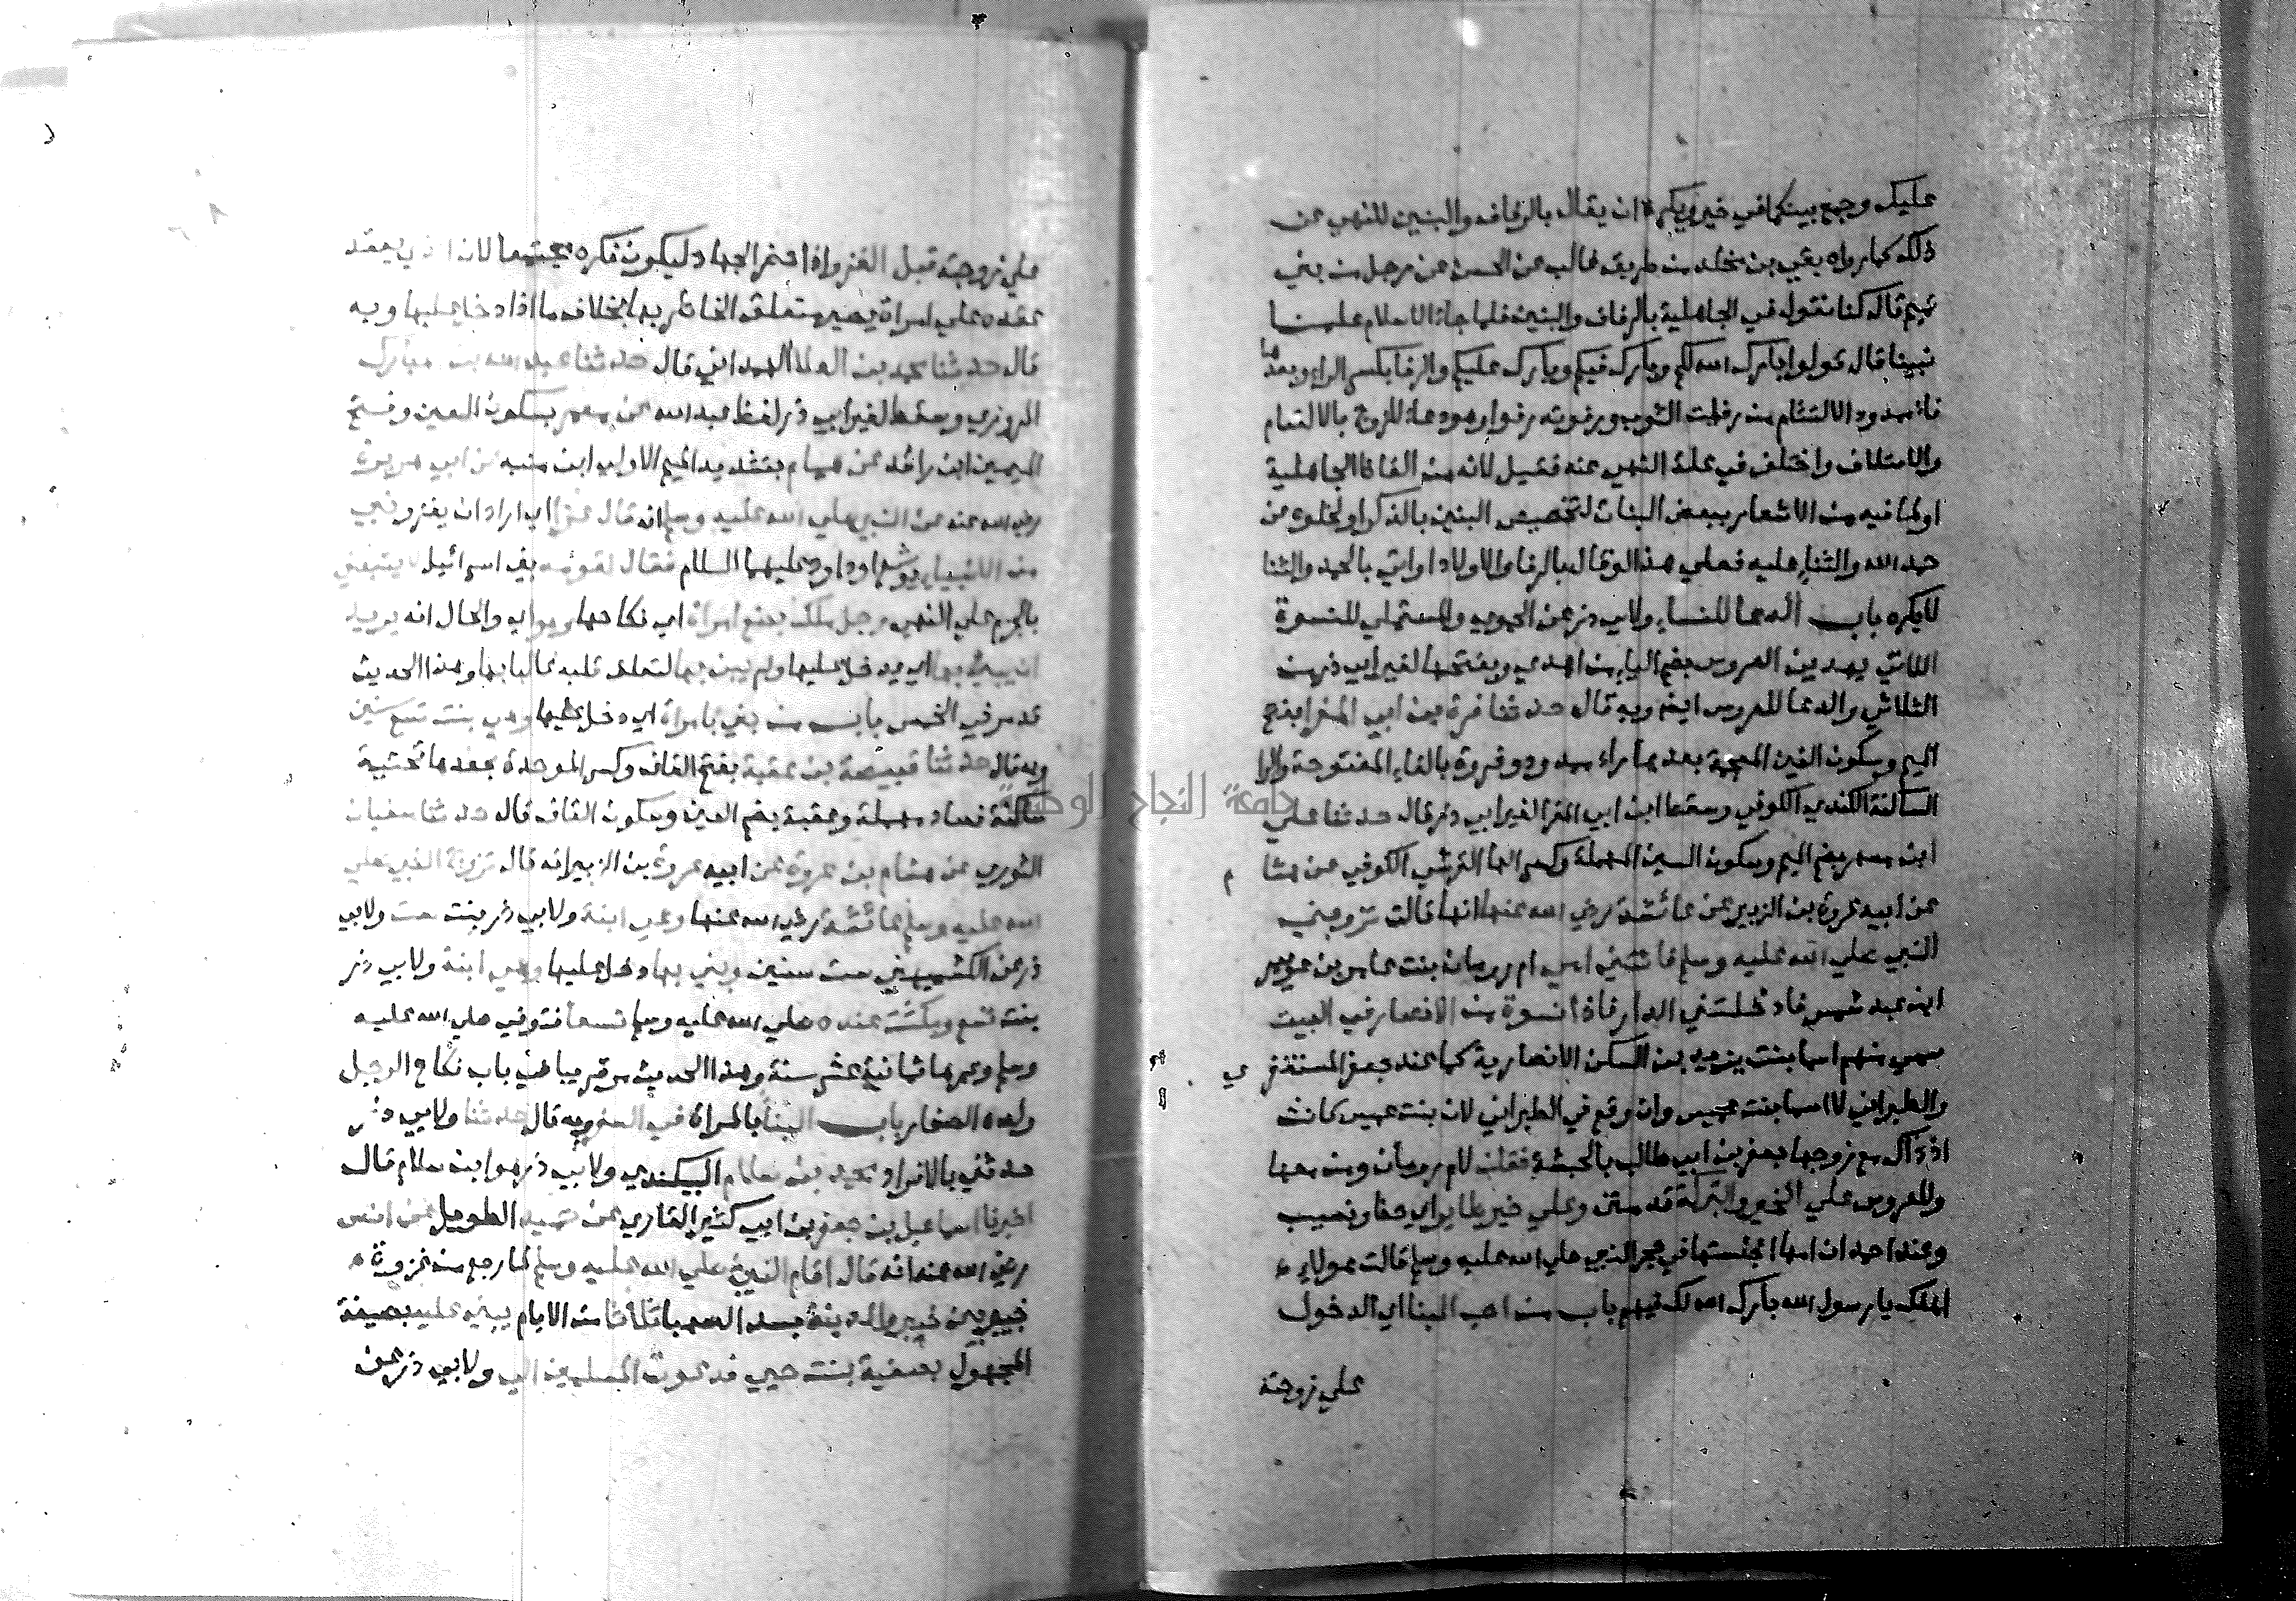 عليك وجمع بينكما في خير ويكره ان يقال بالرفاف والبنين للنهي عن
ذلك كما رواه بقي بن مخلد من طريق غالب عن الحسن عن رجل من بني
تميم قال كنا نقول في الجاهلية بالرفاف والبنين فلما جاء الاسلام علمنا
نبينا قال قولوا بارك الله لكم وبارك فيكم وبارك عليكم والرفا بكسر الراء وبعدها
فاء ممدود الالتئام من رفات الثوب ورفوته رفوا وهو دعاء للزوج بالالتئام
والائتلاف واختلف في علة النهي عنه فقيل لانه من الفاظ الجاهلية
او لما فيه من الاشعار ببعض البنات لتخصيص البنين بالذكر او لخلوه عن
حمد الله والثناء عليه فعلي هذا لو قال بالرفا والاولاد او اتي بالحمد والثنا
لا يكره باب الدعا للنساء ولابي ذر عن الحموي والمستملي للنسوة
اللاتي يهدين العروس بضم الياء من اهدي وبفتحها لغير ابي ذر من
الثلاثي والدعا للعروس ايضا وبه قال حدثنا فروة بن ابي المغرا بفتح
الميم وسكون الغين المعجمة بعدها راء ممدود وفروة بالفاء المفتوحة والرا
الساكنة الكندي الكوفي وسقط ابن ابي المغرا لغير ابي ذر قال حدثنا علي
ابن مسهر بضم الميم وسكون السين المهملة وكسر الها القرشي الكوفي عن هشام
عن ابيه عروة بن الزبير عن عائشة رضي الله عنها انها قالت تزوجني
النبي صلي الله عليه وسلم فاتتني امي ام رومان بنت عامر بن عويمر
ابن عبد شمس فادخلتني الدار فاذا نسوة من الانصار في البيت
سمي منهم اسما بنت يزيد بن السكن الانصارية كما عند جعفر المستغفري
والطبراني لا اسما بنت عميس وان وقع في الطبراني لان بنت عميس كانت
اذ ذاك مع زوجها جعفر بن ابي طالب بالحبشة فقلن لام رومان ومن معها
وللعروس علي الخير والبركة قدمتن وعلي خير طاير اي حظ ونصيب
وعند احمد ان امها اجلستها في حجر النبي صلي الله عليه وسلم قالت هولاء
اهلك يا رسول الله بارك الله لك فيهم باب من احب البنا اي الدخول
علي زوجته
علي زوجته قبل الغزو اذا حضر الجهاد ليكون فكره مجتمعا لان الذي يعقد
عقده علي امراة يصير متعلق الخاطر بها بخلاف ما اذا دخل عليها وبه
قال حدثنا محمد بن العلا الهمداني قال حدثنا عبد الله بن مبارك
المروزي وسقط لغير ابي ذر لفظ عبد الله عن معمر بسكون العين وفتح
الميمين ابن راشد عن همام بتشديد الميم الاولي ابن منبه عن ابي هريرة
رضي الله عنه عن النبي صلي الله عليه وسلم انه قال غزا اي اراد ان يغزو نبي
من الانبياء يوشع او داود عليهما السلام فقال لقومه بني اسرائيل لا يتبعني
بالجزم علي النهي رجل ملك بضع امراة اي نكاحها وهو اي والحال انه يريد
ان يبني بها اي يدخل عليها ولم يبن بها لتعلق قلبه غالبا بها وهذا الحديث
قد مر في الخمس باب من بني بامراة اي دخل عليها وهي بنت تسع سنين
وبه قال حدثنا قبيصة بن عقبة بفتح القاف وكسر الموحدة بعدها تحتية
ساكنة فصاد مهملة وعقبة بضم العين وسكون القاف قال حدثنا سفيان
الثوري عن هشام بن عروة عن ابيه عروة بن الزبير انه قال تزوج النبي صلي
الله عليه وسلم عائشة رضي الله عنها وهي ابنة ولابي ذر بنت ست ولابي
ذر عن الكشميهني ست سنين وبني بها دخل عليها وهي ابنة ولابي ذر
بنت تسع ومكثت عنده صلي الله عليه وسلم تسعا فتوفي صلي الله عليه
وسلم وعمرها ثمانية عشر سنة وهذا الحديث مر قريبا في باب نكاح الرجل
ولده الصغار باب البنا بالمراة في السفر وبه قال حدثنا ولابي ذر
حدثني بالافراد محمد بن سلام البيكندي ولابي ذر هو ابن سلام قال
اخبرنا اسماعيل بن جعفر بن ابي كثير القاري عن حميد الطويل عن انس
رضي الله عنه انه قال اقام النبي صلي الله عليه وسلم لما رجع من غزوة
خيبر بين خيبر والمدينة بسد الصهبا ثلاثا من الايام يبني عليه بصيغة
المجهول بصفية بنت حيي فدعوت المسلمين الي ولابي ذر عن